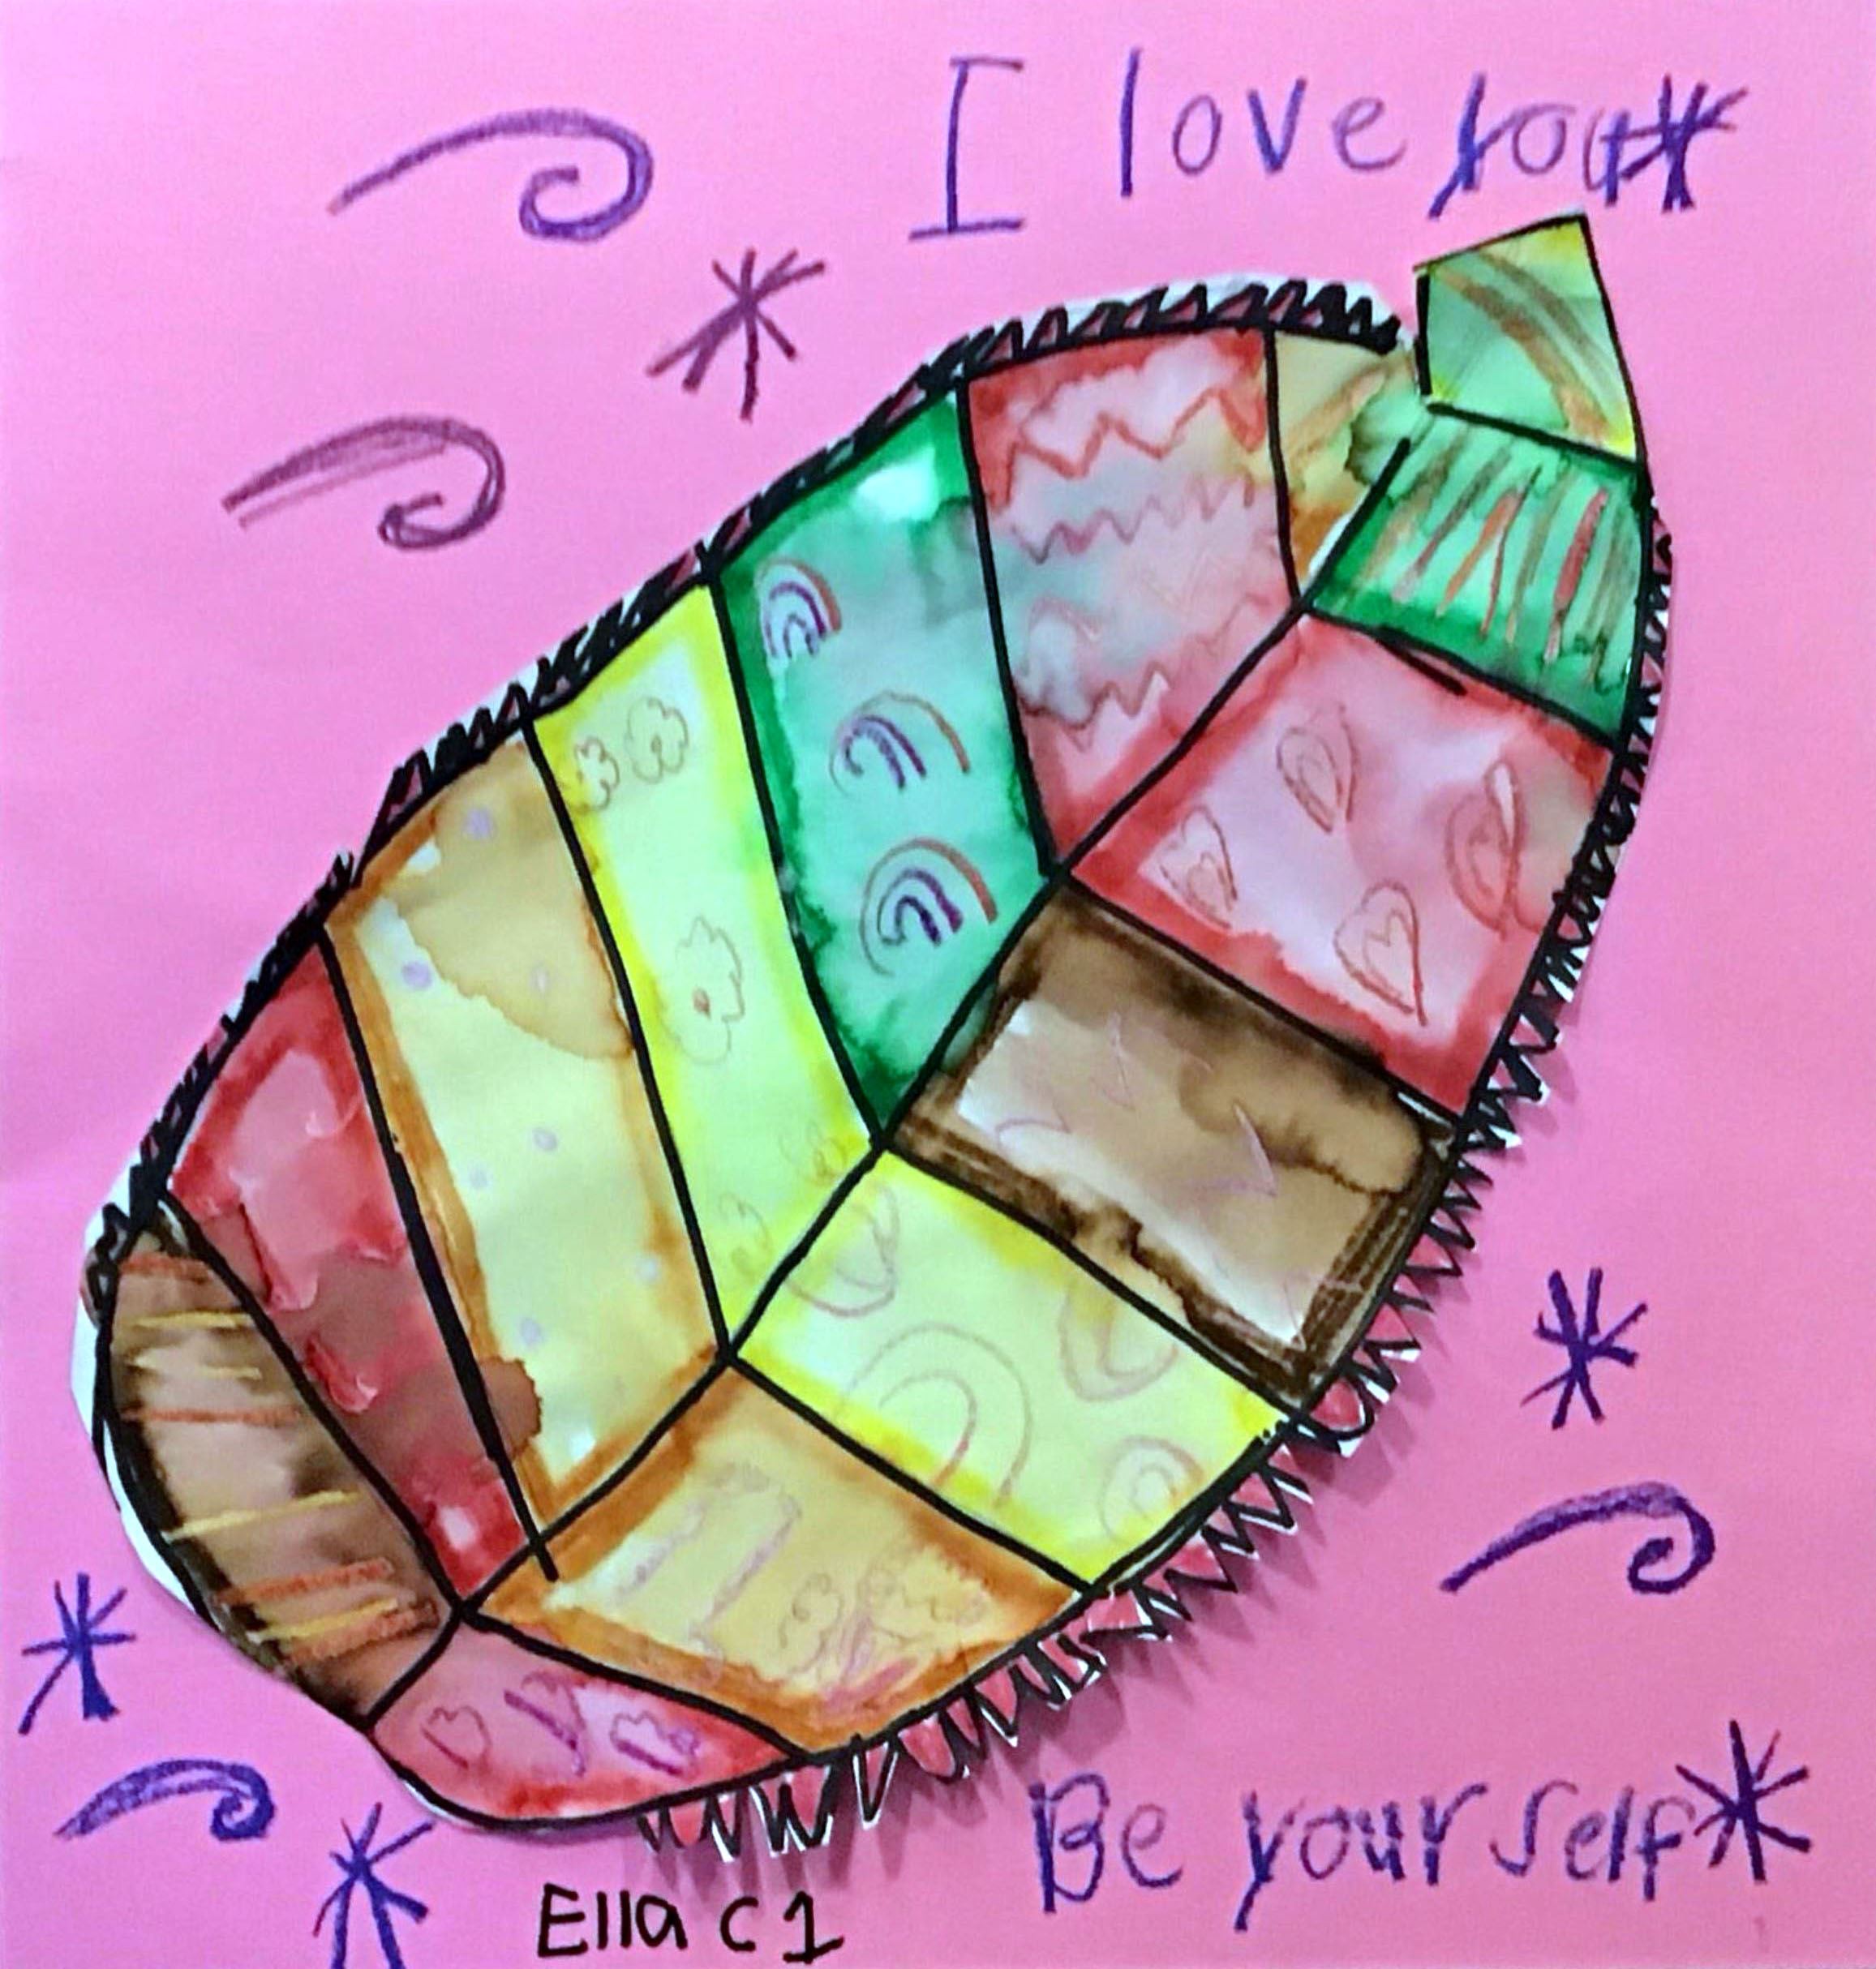 I love you
Be your self
Ella C 1